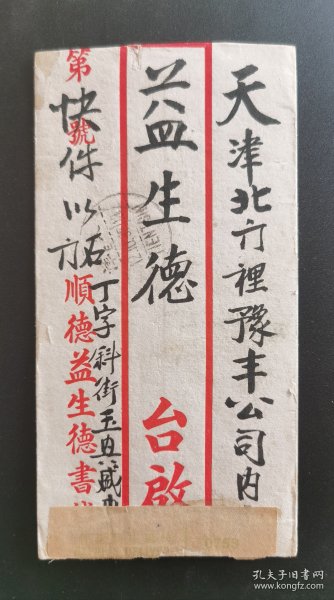 天津北门裡豫丰公司内
益生德
台啟
第 號
快件
順德益生德書
丁字斜街玉
孔夫子旧书网
www.kongfz.com